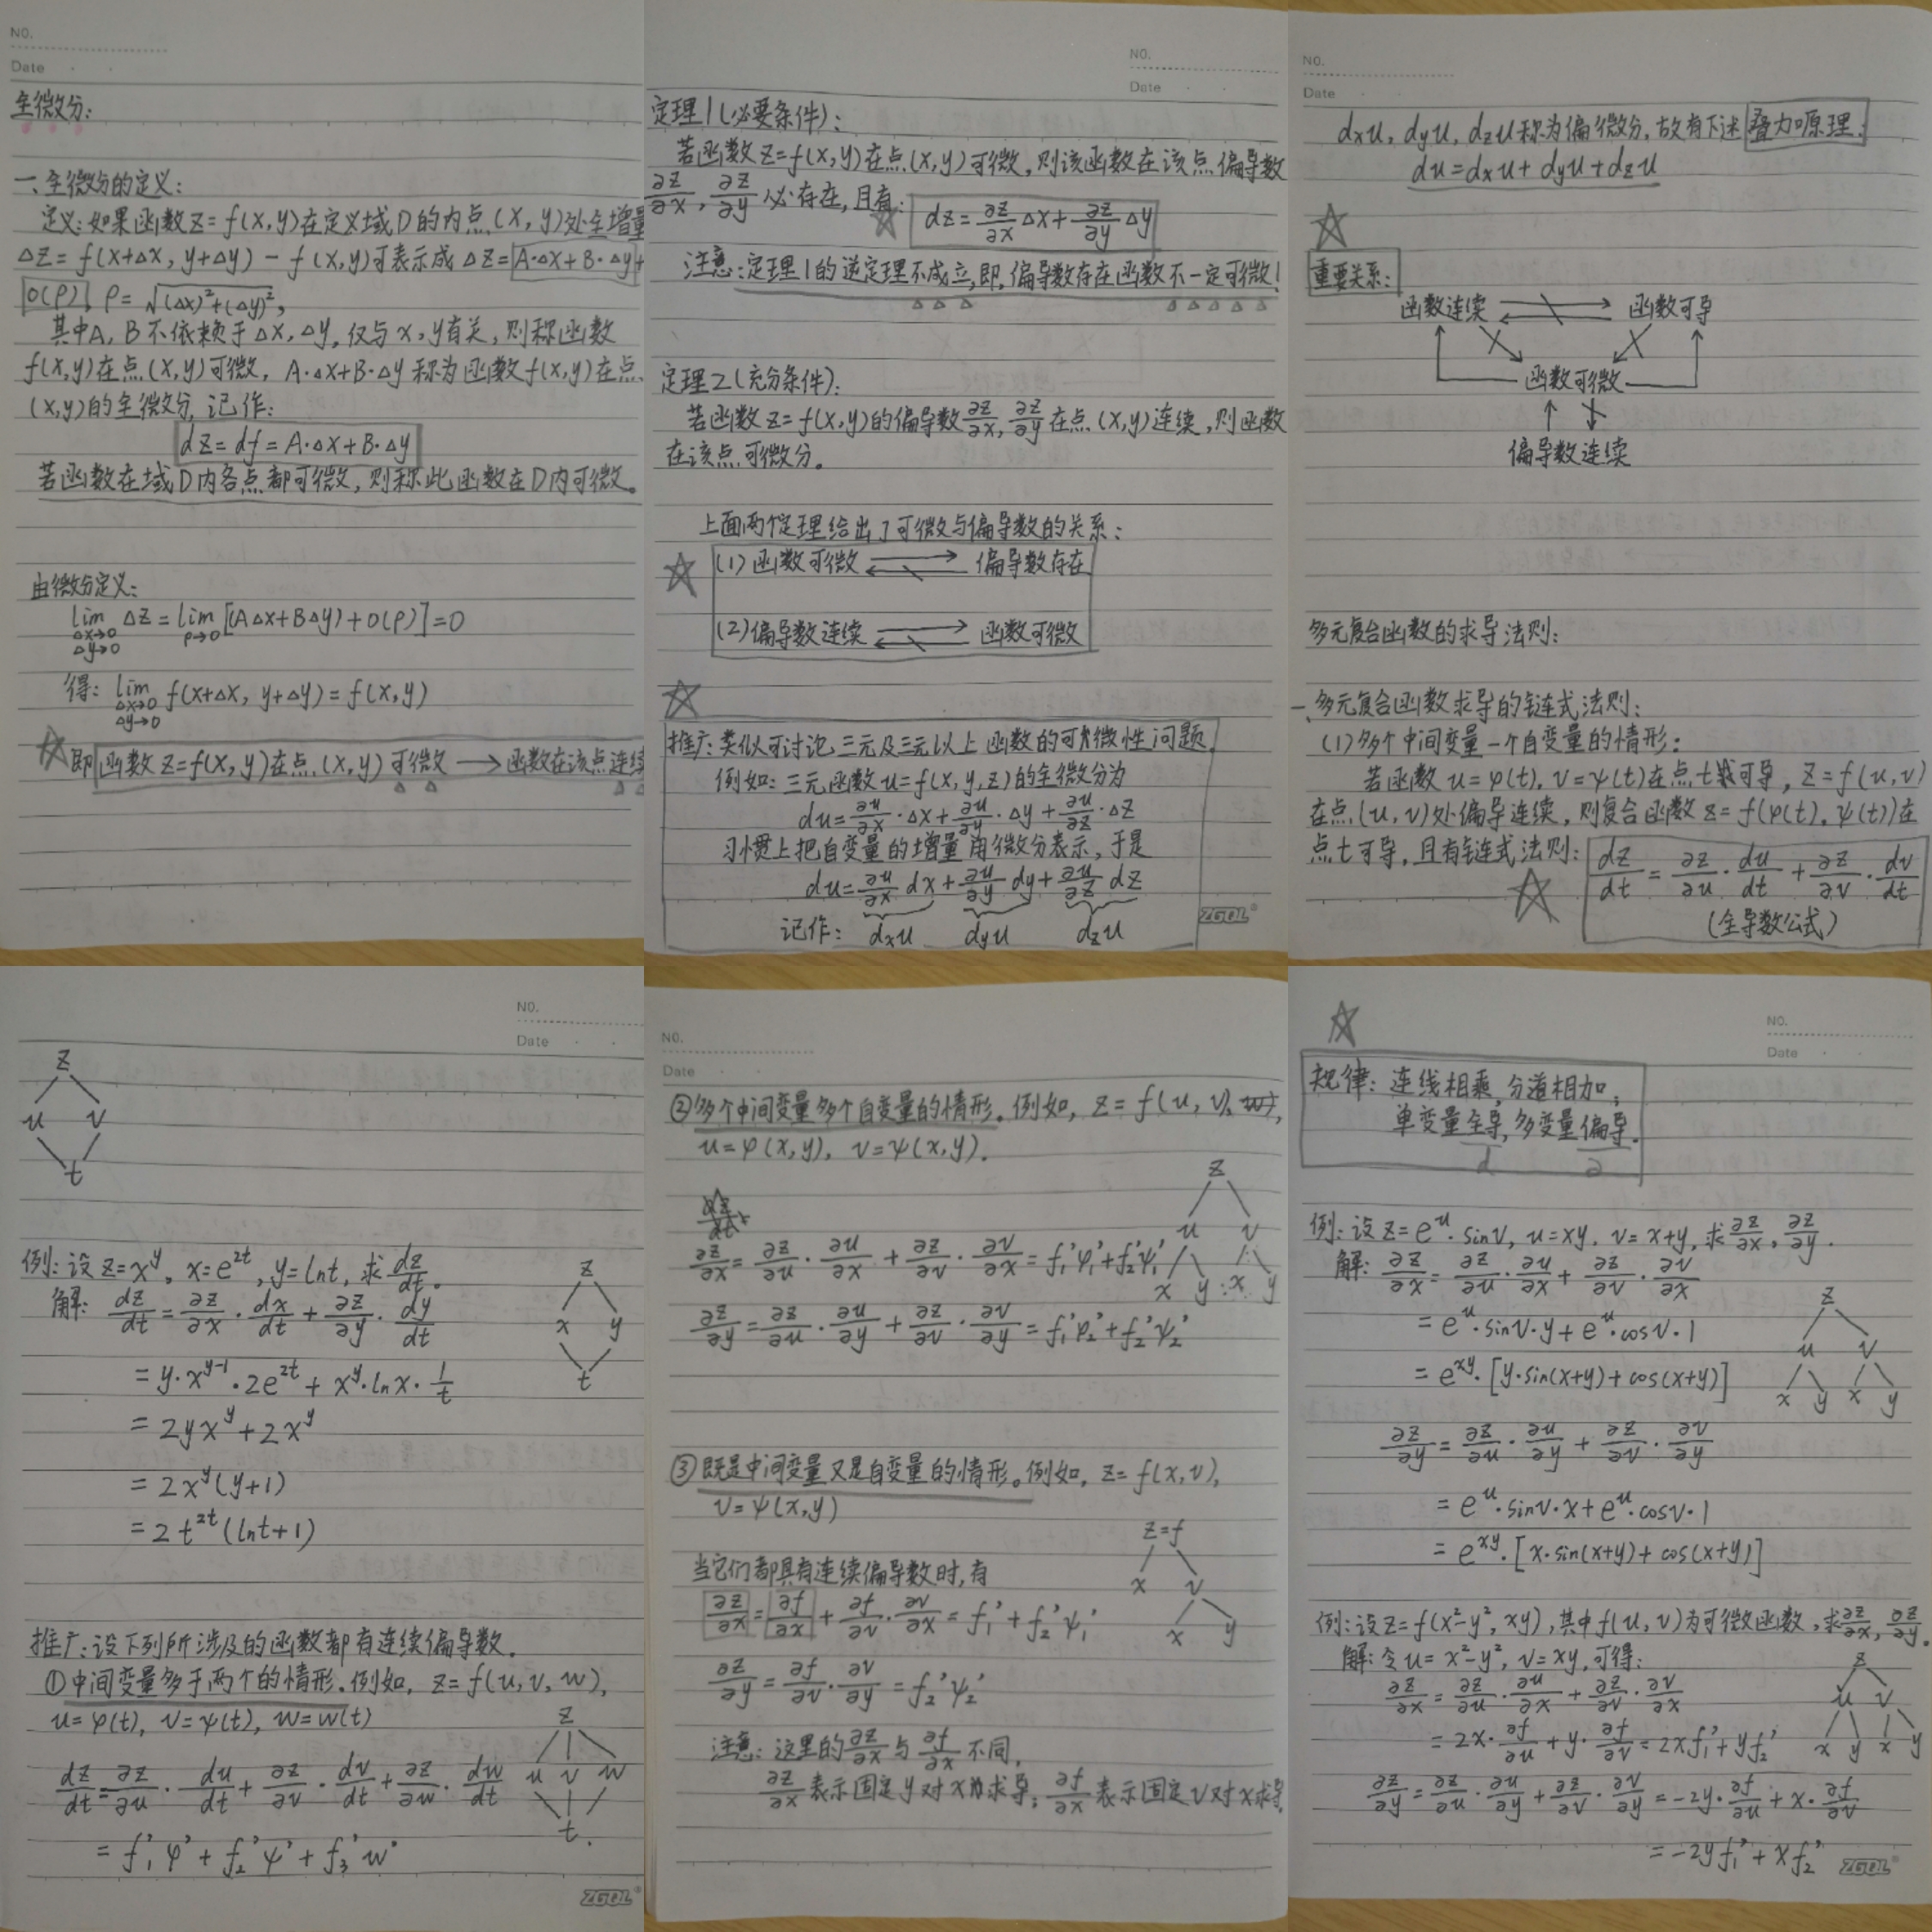 NO.
Date
全微分:
一、全微分的定义:
定义:如果函数 z=f(x,y)在定义域D的内点(x,y)处全增量
Δz= f(x+Δx, y+Δy) - f(x,y)可表示成 Δz=A·Δx+B·Δy+
o(ρ), ρ=√((Δx)²+(Δy)²),
其中A,B不依赖于Δx,Δy,仅与x,y有关,则称函数
f(x,y)在点(x,y)可微, A·Δx+B·Δy 称为函数f(x,y)在点
(x,y)的全微分,记作:
dz=df=A·Δx+B·Δy
若函数在域D内各点都可微,则称此函数在D内可微。
由微分定义:
lim Δz = lim [(AΔx+BΔy)+o(ρ)]=0
Δx→0 ρ→0
Δy→0
得: lim f(x+Δx, y+Δy)=f(x,y)
Δx→0
Δy→0
即函数z=f(x,y)在点(x,y)可微 → 函数在该点连续
NO.
Date
定理1(必要条件):
若函数z=f(x,y)在点(x,y)可微,则该函数在该点偏导数
∂z/∂x, ∂z/∂y 必存在,且有: dz=∂z/∂x Δx+∂z/∂y Δy
注意:定理1的逆定理不成立,即,偏导数存在函数不一定可微!
定理2(充分条件):
若函数z=f(x,y)的偏导数∂z/∂x, ∂z/∂y在点(x,y)连续,则函数
在该点可微分。
上面两个定理给出了可微与偏导数的关系:
(1)函数可微 偏导数存在
(2)偏导数连续 函数可微
推广:类似可讨论三元及三元以上函数的可微性问题.
例如:三元函数u=f(x,y,z)的全微分为
du=∂u/∂x·Δx+∂u/∂y·Δy+∂u/∂z·Δz
习惯上把自变量的增量用微分表示,于是
du=∂u/∂x dx+∂u/∂y dy+∂u/∂z dz
记作: dxu dyu dzu
ZGOL
NO.
Date
dxu, dyu, dzu称为偏微分,故有下述叠加原理:
du=dxu+dyu+dzu
重要关系:
函数连续 函数可导
函数可微
偏导数连续
多元复合函数的求导法则:
一、多元复合函数求导的链式法则:
(1)多个中间变量一个自变量的情形:
若函数 u=φ(t), v=ψ(t)在点t可导, z=f(u,v)
在点(u,v)处偏导连续,则复合函数 z=f(φ(t),ψ(t))在
点t可导,且有链式法则: dz/dt=∂z/∂u·du/dt+∂z/∂v·dv/dt
(全导数公式)
NO.
Date
z
u v
t
例:设z=x^y, x=e^{2t}, y=lnt,求dz/dt。
解: dz/dt=∂z/∂x·dx/dt+∂z/∂y·dy/dt
z
x y
t
=y·x^{y-1}·2e^{2t}+x^y·lnx·1/t
=2yx^y+2x^y
=2x^y(y+1)
=2t^{2t}(lnt+1)
推广:设下列所涉及的函数都有连续偏导数.
①中间变量多于两个的情形.例如, z=f(u,v,w),
u=φ(t), v=ψ(t), w=w(t)
z
u v w
t.
dz/dt=∂z/∂u·du/dt+∂z/∂v·dv/dt+∂z/∂w·dw/dt
=f₁'φ'+f₂'ψ'+f₃'w'
ZGOL
NO.
Date
②多个中间变量多个自变量的情形.例如, z=f(u,v),
u=φ(x,y), v=ψ(x,y).
z
u v
x y x y
∂z/∂x=∂z/∂u·∂u/∂x+∂z/∂v·∂v/∂x=f₁'φ₁'+f₂'ψ₁'
∂z/∂y=∂z/∂u·∂u/∂y+∂z/∂v·∂v/∂y=f₁'φ₂'+f₂'ψ₂'
③既是中间变量又是自变量的情形。例如, z=f(x,v),
v=ψ(x,y)
z=f
x v
x y
当它们都具有连续偏导数时,有
∂z/∂x=∂f/∂x+∂f/∂v·∂v/∂x=f₁'+f₂'ψ₁'
∂z/∂y=∂f/∂v·∂v/∂y=f₂'ψ₂'
注意:这里的∂z/∂x与∂f/∂x不同,
∂z/∂x表示固定y对x求导;∂f/∂x表示固定v对x求导
NO.
Date
规律:连线相乘,分道相加;
单变量全导,多变量偏导.
d ∂
例:设z=e^u·sinv, u=xy, v=x+y,求∂z/∂x, ∂z/∂y.
解: ∂z/∂x=∂z/∂u·∂u/∂x+∂z/∂v·∂v/∂x
=e^u·sinv·y+e^u·cosv·1
=e^{xy}·[y·sin(x+y)+cos(x+y)]
z
u v
x y x y
∂z/∂y=∂z/∂u·∂u/∂y+∂z/∂v·∂v/∂y
=e^u·sinv·x+e^u·cosv·1
=e^{xy}·[x·sin(x+y)+cos(x+y)]
例:设z=f(x²-y²,xy),其中f(u,v)为可微函数,求∂z/∂x, ∂z/∂y.
解:令u=x²-y², v=xy,可得:
∂z/∂x=∂z/∂u·∂u/∂x+∂z/∂v·∂v/∂x
=2x·∂f/∂u+y·∂f/∂v=2xf₁'+yf₂'
z
u v
x y x y
∂z/∂y=∂z/∂u·∂u/∂y+∂z/∂v·∂v/∂y=-2y·∂f/∂u+x·∂f/∂v
=-2yf₁'+xf₂'
ZGOL